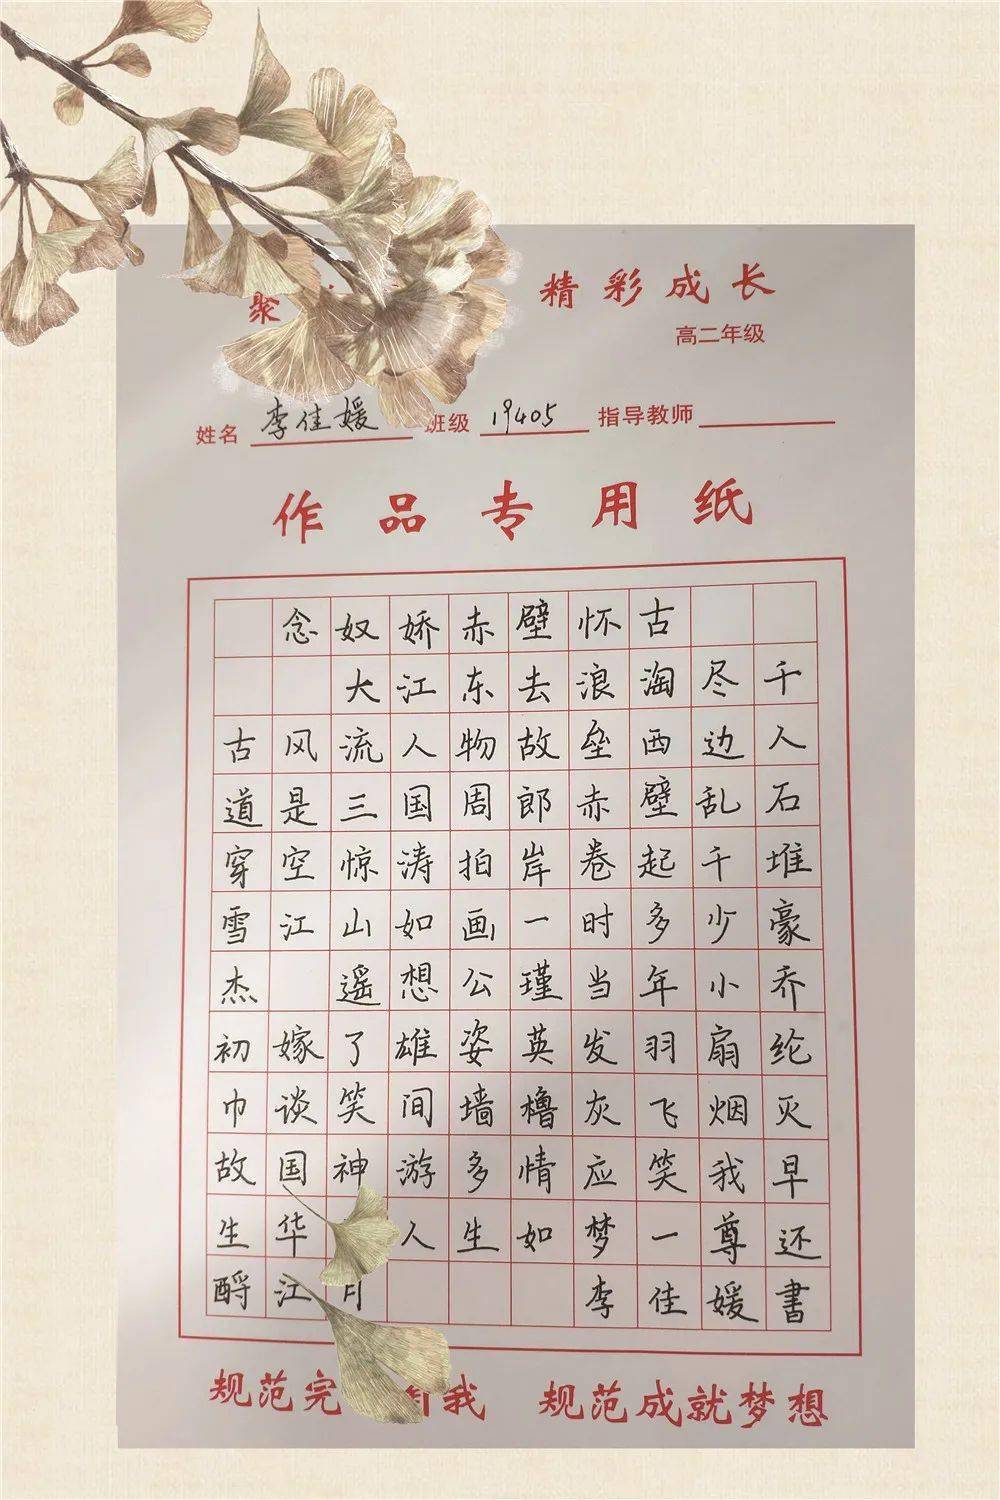 聚 精彩成长
高二年级
姓名 李佳媛 班级 19405 指导教师
作品专用纸
念奴娇赤壁怀古
大江东去浪淘尽千
古风流人物故垒西边人
道是三国周郎赤壁乱石
穿空惊涛拍岸卷起千堆
雪江山如画一时多少豪
杰 遥想公瑾当年小乔
初嫁了雄姿英发羽扇纶
巾谈笑间墙橹灰飞烟灭
故国神游多情应笑我早
生华 人生如梦一尊还
酹江月 李佳媛书
规范完 我 规范成就梦想